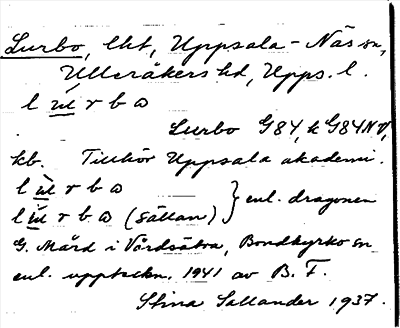 Lurbo, lht, Uppsala-Näs sn,
Ulleråkers hd, Upps. l.
l u̲l̲ r b ɷ
Lurbo G84, k G84NV,
kb. Tillhör Uppsala akademi.
l ùl r b ɷ
l ùl r b ɷ (sällan) } enl. dragonen
G. Mård i Vårdsätra, Bondkyrko sn
enl. uppteckn. 1941 av B. F.
Stina Sallander 1937.